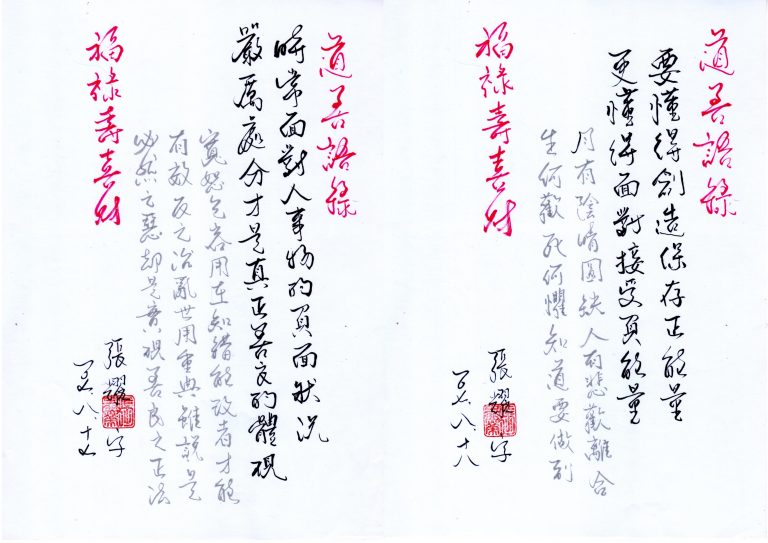 道善語錄
要懂得創造保存正能量
更懂得面對接受負能量
月有陰晴圓缺人有悲歡離合
生何歡死何懼知道要做到
張 字
八、十八
福祿壽喜財
道善語錄
時常面對人事物的負面狀況
嚴厲處分才是真正善良的體現
寬恕包容用在知錯能改者才能
有效反之治亂世用重典雖說是
必然之惡卻是實現善良之正法
張 字
八、十七
福祿壽喜財